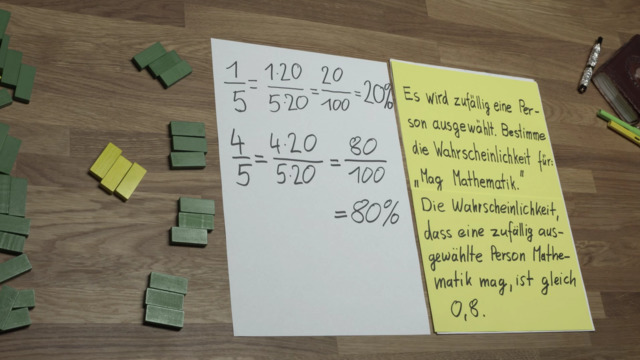 1/5 = 1·20/5·20 = 20/100 = 20%
4/5 = 4·20/5·20 = 80/100
= 80%
Es wird zufällig eine Per-
son ausgewählt. Bestimme
die Wahrscheinlichkeit für:
„Mag Mathematik."
Die Wahrscheinlichkeit,
dass eine zufällig aus-
gewählte Person Mathe-
matik mag, ist gleich
0,8.